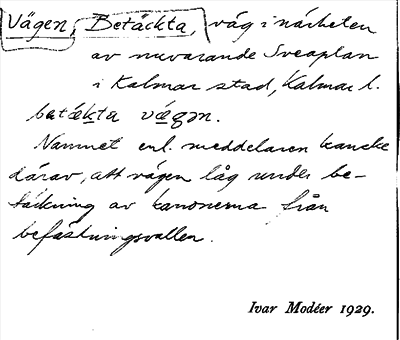 Vägen, Betäckta, väg i närheten
av nuvarande Sveaplan
i Kalmar stad, Kalmar l.
batǽkta vǽgən.
Namnet enl. meddelaren kanske
därav, att vägen låg under be-
täckning av kanonerna från
befästningsvallen.
Ivar Modéer 1929.